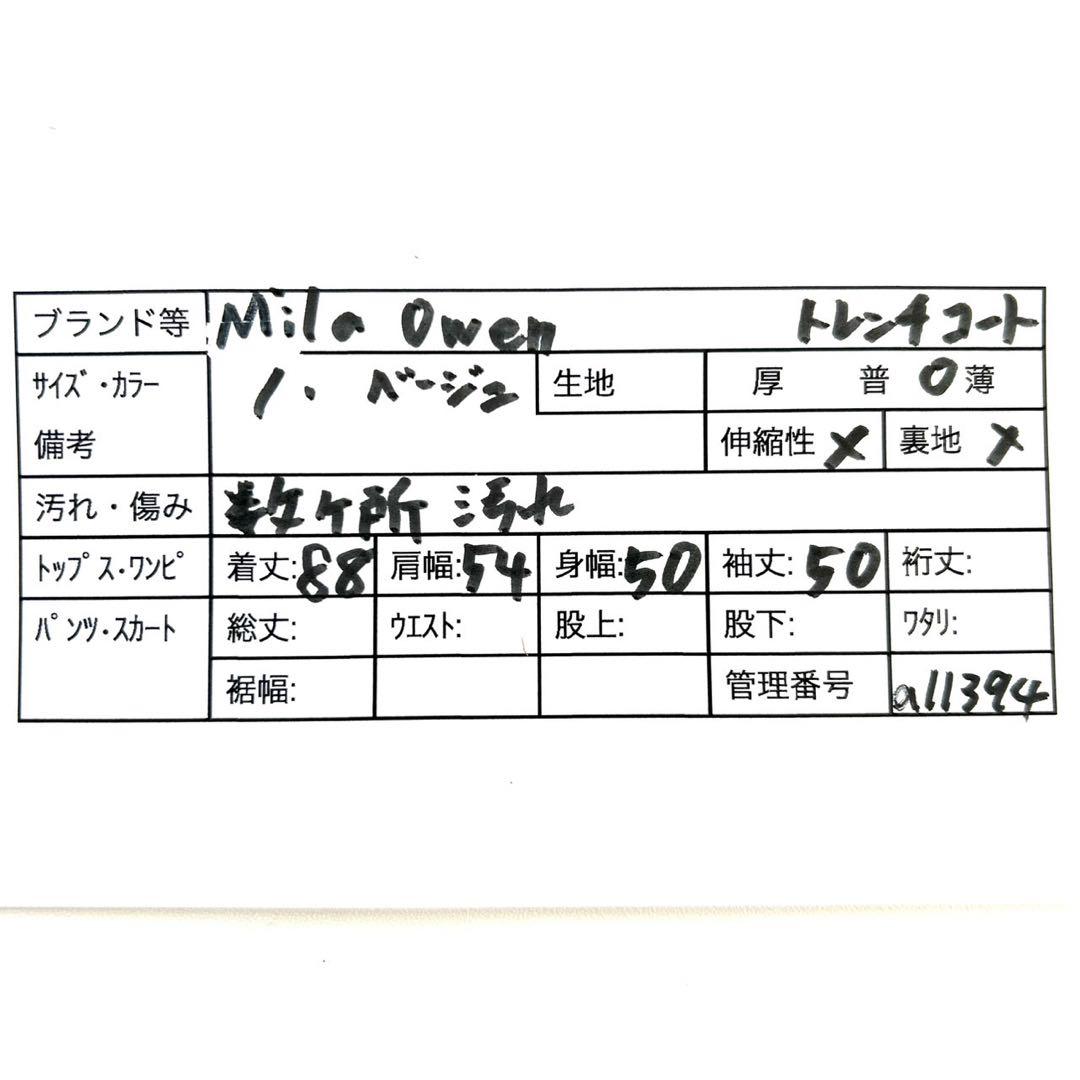 ブランド等 Mila Owen トレンチコート
サイズ・カラー 1. ベージュ 生地 厚 普 〇 薄
備考 伸縮性 × 裏地 ×
汚れ・傷み 数ヶ所 汚れ
トップス・ワンピ 着丈:88 肩幅:54 身幅:50 袖丈:50 裄丈:
パンツ・スカート 総丈: ウエスト: 股上: 股下: ワタリ:
裾幅: 管理番号 a11394